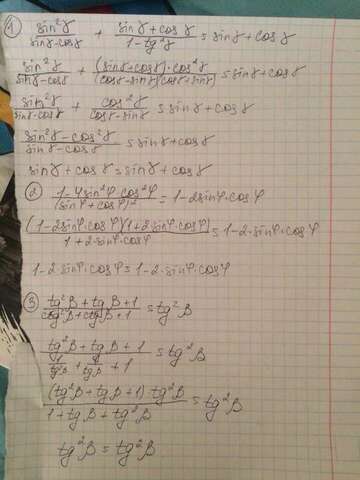 ① sin²γ/(sinγ-cosγ) + (sinγ+cosγ)/(1-tg²γ) = sinγ+cosγ
sin²γ/(sinγ-cosγ) + (sinγ+cosγ)·cos²γ/((cosγ-sinγ)(cosγ+sinγ)) = sinγ+cosγ
sin²γ/(sinγ-cosγ) + cos²γ/(cosγ-sinγ) = sinγ+cosγ
(sin²γ-cos²γ)/(sinγ-cosγ) = sinγ+cosγ
sinγ+cosγ = sinγ+cosγ
② (1-4sin²φ·cos²φ)/(sinφ+cosφ)² = 1-2sinφ·cosφ
(1-2sinφ·cosφ)(1+2sinφ·cosφ)/(1+2·sinφ·cosφ) = 1-2·sinφ·cosφ
1-2sinφ·cosφ = 1-2·sinφ·cosφ
③ (tg²β+tgβ+1)/(ctg²β+ctgβ+1) = tg²β
(tg²β+tgβ+1)/(1/tg²β+1/tgβ+1) = tg²β
(tg²β+tgβ+1)·tg²β/(1+tgβ+tg²β) = tg²β
tg²β = tg²β